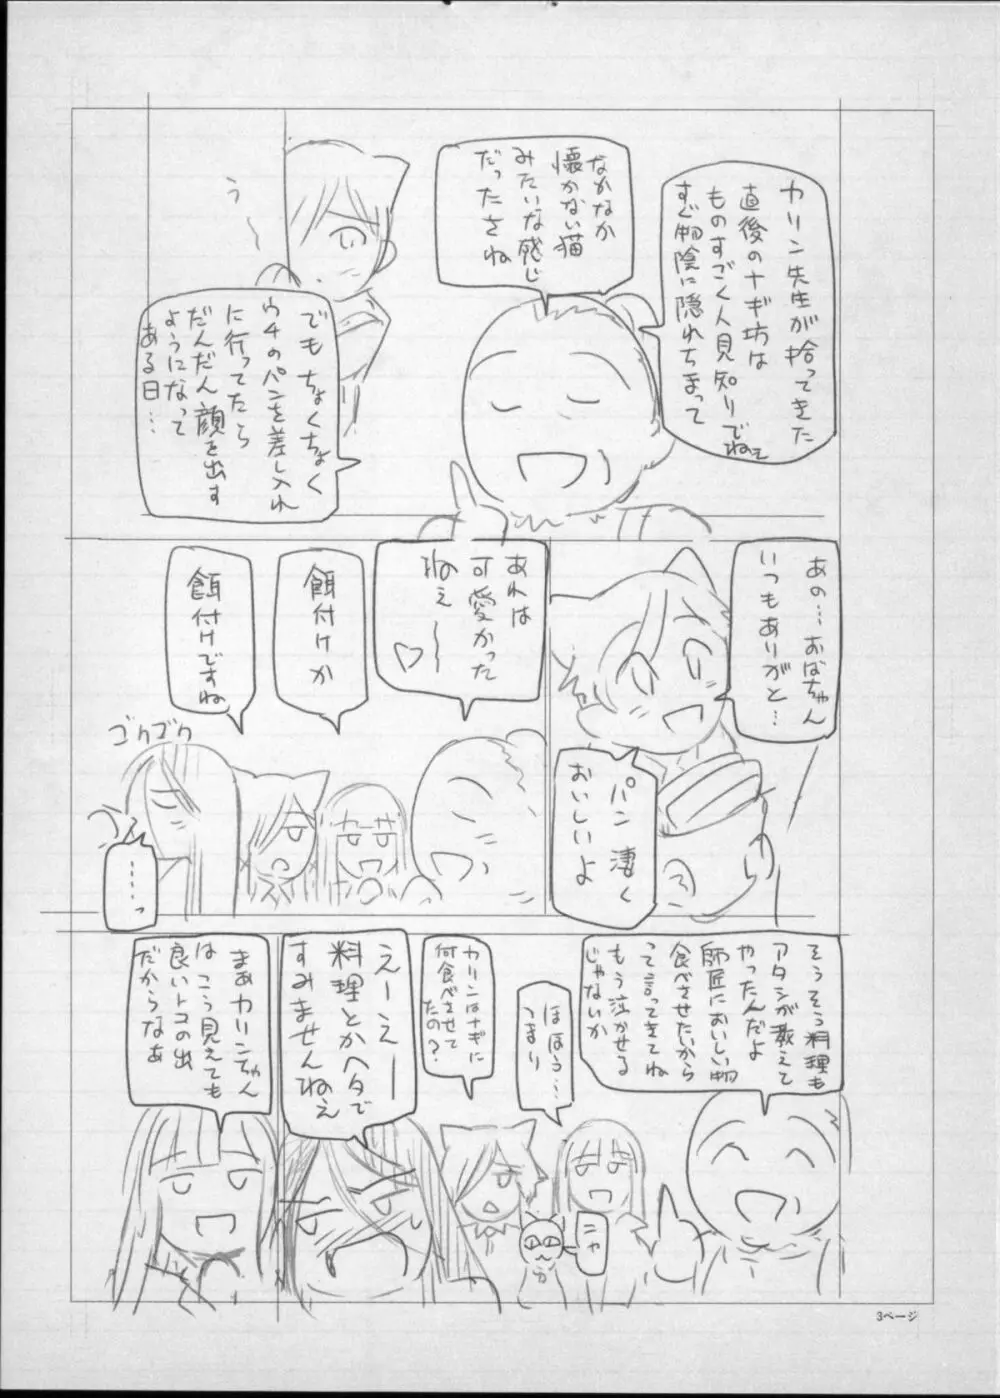 カリン先生が拾ってきた
直後のナギ坊は
ものすごく人見知りでねぇ
すぐ物陰に隠れちまって
なかなか
懐かない猫
みたいな感じ
だったさね
う
でもちょくちょく
ウチのパンを差し入れ
に行ってたら
だんだん顔を出す
ようになって
ある日…
あの…おばちゃん
いつもありがと…
パン凄く
おいしいよ
あれは
可愛かった
ねぇ〜♡
餌付けか
餌付けですね
ゴクゴク
……っ
そうそう料理も
アタシが教えて
やったんだよ
師匠においしい物
食べさせたいから
って言ってきてね
もう泣かせる
じゃないか
ほほう…
つまり
カリンはナギに
何食べさせて
たの?
ニャ
えーえー
料理とかヘタで
すみませんねえ
まぁカリンちゃん
はこう見えても
良いトコの出
だからなぁ
3ページ